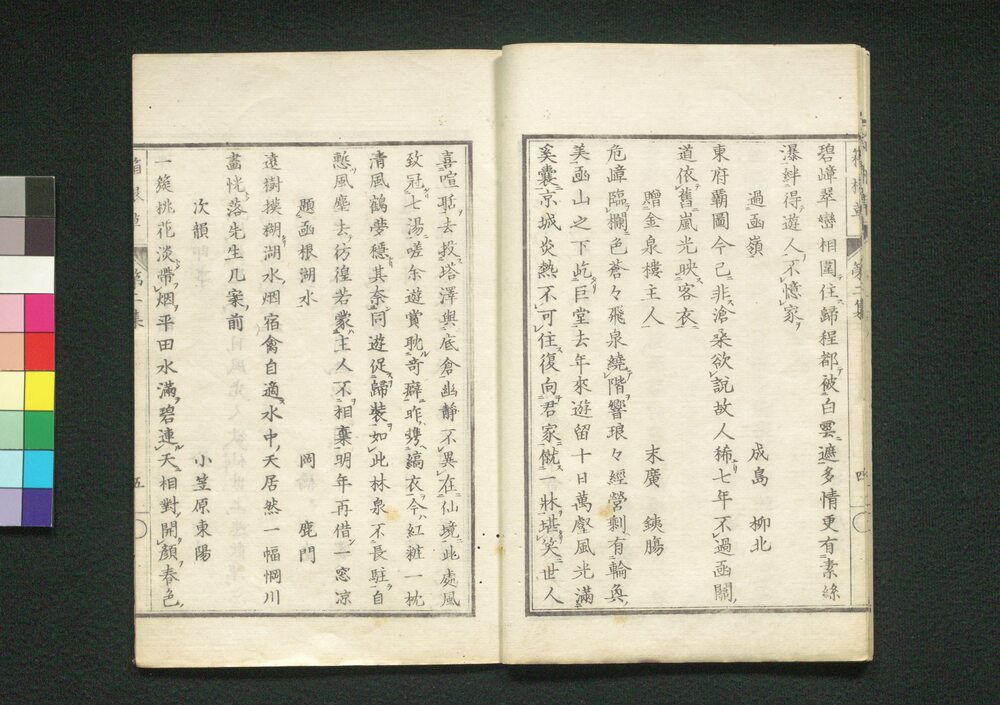 碧嶂翠巒相圍住歸程都被白雲遮多情更有素絲
瀑絆得遊人不憶家
過函嶺　成島柳北
東府覇圖今已非滄桑欲說故人稀七年不過函關
道依舊嵐光映客衣
贈金泉樓主人　末廣鐵膓
危嶂臨欄色蒼々飛泉繞階響琅々經營剩有輪奐
美函山之下屹巨堂去年來遊留十日萬壑風光滿
奚囊京城炎熱不可住復向君家僦一牀堪笑世人
喜喧聒去投塔澤與底倉幽靜不異在仙境此處風
致冠七湯嗟余遊賞耽奇癖昨携縞衣今紅粧一枕
清風鶴夢穩其奈同遊促歸裝如此林泉不長駐自
慙風塵去彷徨若蒙主人不相棄明年再借一窓凉
題函根湖水　岡鹿門
遠樹摸糊湖水烟宿禽自適水中天居然一幅惘川
畵恍落先生几案前
次韻　小笠原東陽
一簇桃花淡帶烟平田水滿碧連天相對開顏春色
第二集
四
第二集
五